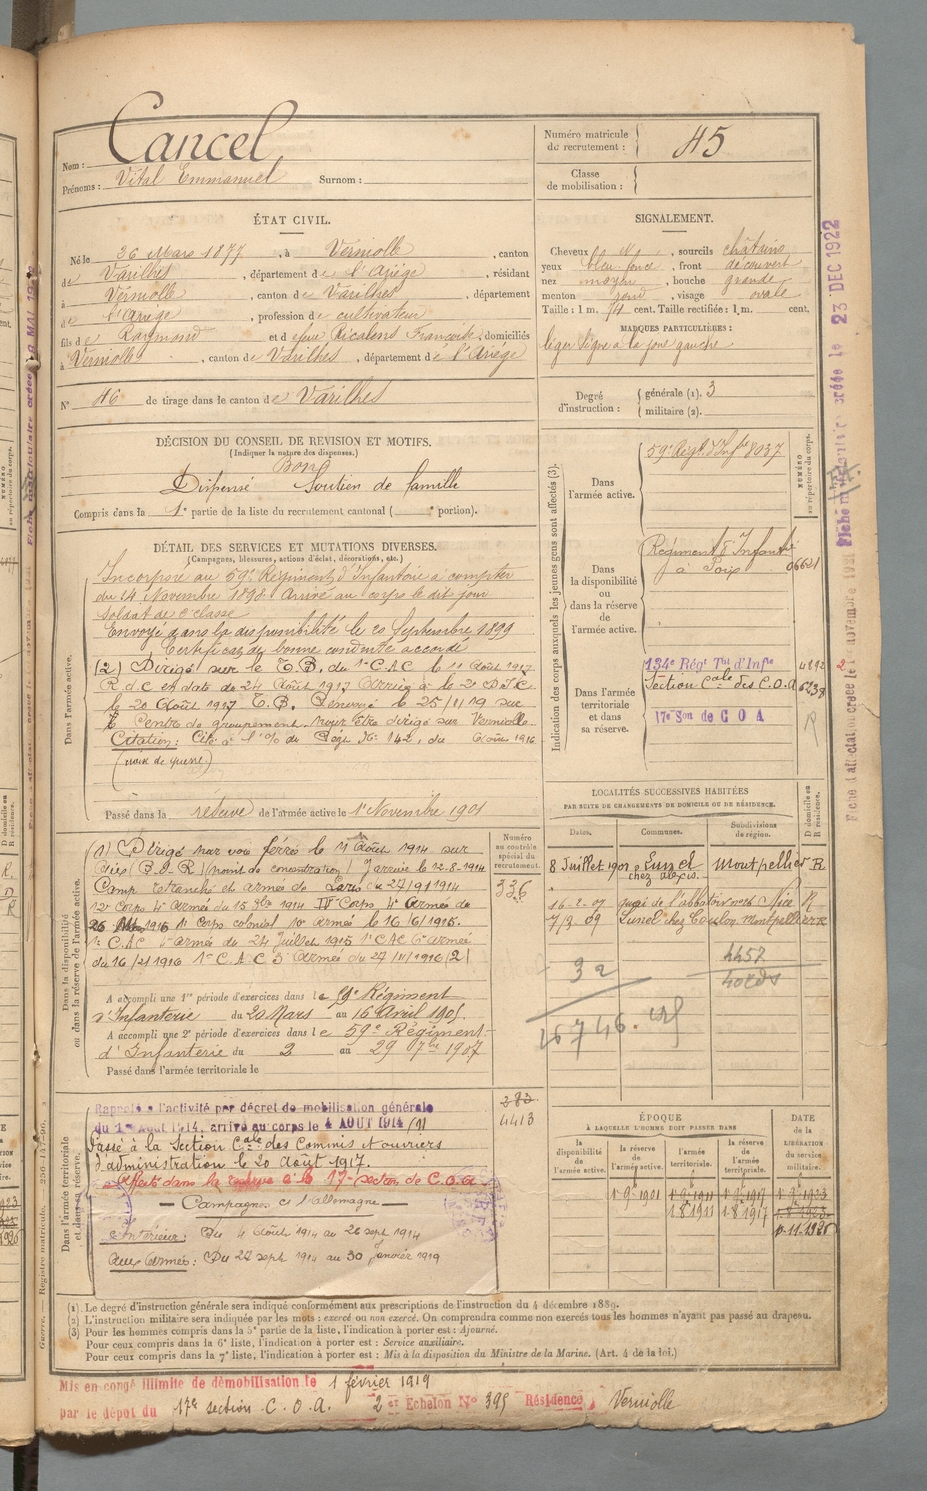 Nom : Cancel
Prénoms : Vital Emmanuel Surnom :
Numéro matricule
du recrutement : 45
Classe
de mobilisation :
ÉTAT CIVIL.
Né le 26 Mars 1877, à Verniolle, canton
de Varilhes, département de l'Ariège, résidant
à Verniolle, canton de Varilhes, département
de l'Ariège, profession de cultivateur
fils de Raymond et d feue Ricalens Françoise, domiciliés
à Verniolle, canton de Varilhes, département de l'Ariège
N° 46 de tirage dans le canton de Varilhes
SIGNALEMENT.
Cheveux, sourcils châtains
yeux bleu foncé, front découvert
nez moyen, bouche grande
menton rond, visage ovale
Taille : 1 m. 71 cent. Taille rectifiée : 1 m. cent.
MARQUES PARTICULIÈRES :
léger signe à la joue gauche
Degré
d'instruction :
générale (1). 3
militaire (2).
DÉCISION DU CONSEIL DE REVISION ET MOTIFS.
(Indiquer la nature des dispenses.)
Bon
Dispensé Soutien de famille
Compris dans la 1e partie de la liste du recrutement cantonal ( e portion).
DÉTAIL DES SERVICES ET MUTATIONS DIVERSES.
(Campagnes, blessures, actions d'éclat, décorations, etc.)
Dans l'armée active.
Incorporé au 59e Régiment d'Infanterie à compter
du 14 Novembre 1898 Arrivé au corps le dit jour
Soldat de 2e classe
Envoyé dans la disponibilité le 20 Septembre 1899
Certificat de bonne conduite accordé
(2) Dirigé sur le T.B. du 1er C.A.C le 11 Août 1917
R d C en date du 24 Août 1917
le 20 Août 1917. T.B. Renvoyé le 25/11/19 sur
le Centre de groupement pour être dirigé sur Verniolle
Citation : Cité à l'O/ du Régt N° 142, du Août 1916
(croix de guerre)
Passé dans la réserve de l'armée active le 1er Novembre 1901
Indication des corps auxquels les jeunes gens sont affectés (3).
NUMÉRO
au répertoire du corps.
Dans
l'armée active.
59e Régt d'Infie 8037
Dans
la disponibilité
ou
dans la réserve
de
l'armée active.
Régiment d'Infantie
à Foix 06621
Dans l'armée
territoriale
et dans
sa réserve.
134e Régt Tal d'Infie 4892
Section Cale des C.O.A 6238
17e Son de C O A
R
LOCALITÉS SUCCESSIVES HABITÉES
PAR SUITE DE CHANGEMENTS DE DOMICILE OU DE RÉSIDENCE.
Dates. Communes. Subdivisions
de région.
D domicile ou
R résidence.
8 Juillet 1901 Lunel Montpellier R
16-2-07 quai de l'abbatoir n°26 Nice R
7/3.09 Lunel chez Coulon Montpellier R
4457
32
16746
Dans la disponibilité
ou dans la réserve de l'armée active.
Numéro
au contrôle
spécial du
recrutement.
336
(1) Dirigé par voie ferrée le 11 Août 1914 sur
(point de concentration) Y arrivé le 12-8-1914
Camp retranché et armée de Paris du 27/9/1914
12e Corps 4e Armée du 15 9bre 1914 IVe Corps 4e Armée du
1er Corps colonial 10e armée le 16/6/1915.
1er C.A.C 4e armée du 24 Juillet 1915 1er C.A.C 6e armée
du 16/2/1916 1er C A C 3e Armée du 27/11/1916 (2)
A accompli une 1re période d'exercices dans le 59e Régiment
d'Infanterie du 20 Mars au 16 Avril 1905.
A accompli une 2e période d'exercices dans le 59e Régiment
d'Infanterie du 2 au 29 7bre 1907
Passé dans l'armée territoriale le
Dans l'armée territoriale
et dans sa réserve.
283
4413
Rappelé à l'activité par décret de mobilisation générale
du 1er Août 1914, arrivé au corps le 4 AOUT 1914 (1)
Passé à la Section Cale des Commis et ouvriers
d'administration le 20 août 1917.
Affecté dans la réserve à la 17e section de C.O.A.
— Campagnes c/ l'allemagne —
Intérieur : Du 4 Août 1914 au 26 sept 1914
Aux Armées : Du 27 sept 1914 au 30 Janvier 1919
ÉPOQUE
À LAQUELLE L'HOMME DOIT PASSER DANS
la
disponibilité
de
l'armée active.
la réserve
de
l'armée active.
l'armée
territoriale.
la réserve
de
l'armée
territoriale.
DATE
de la
LIBÉRATION
du
service
militaire.
1 9bre 1901 1 9bre 1911 1 9bre 1917 1 9bre 1923
1.8 1911 1.8 1917 1.8 1923
(1). Le degré d'instruction générale sera indiqué conformément aux prescriptions de l'instruction du 4 décembre 1889.
(2) L'instruction militaire sera indiquée par les mots : exercé ou non exercé. On comprendra comme non exercés tous les hommes n'ayant pas passé au drapeau.
(3) Pour les hommes compris dans la 5e partie de la liste, l'indication à porter est : Ajourné.
Pour ceux compris dans la 6e liste, l'indication à porter est : Service auxiliaire.
Pour ceux compris dans la 7e liste, l'indication à porter est : Mis à la disposition du Ministre de la Marine. (Art. 4 de la loi.)
Mis en congé illimité de démobilisation le 1 février 1919
par le dépôt du 17e section C.O.A. 2e Echelon N° 395 Résidence Verniolle
23 DEC 1922